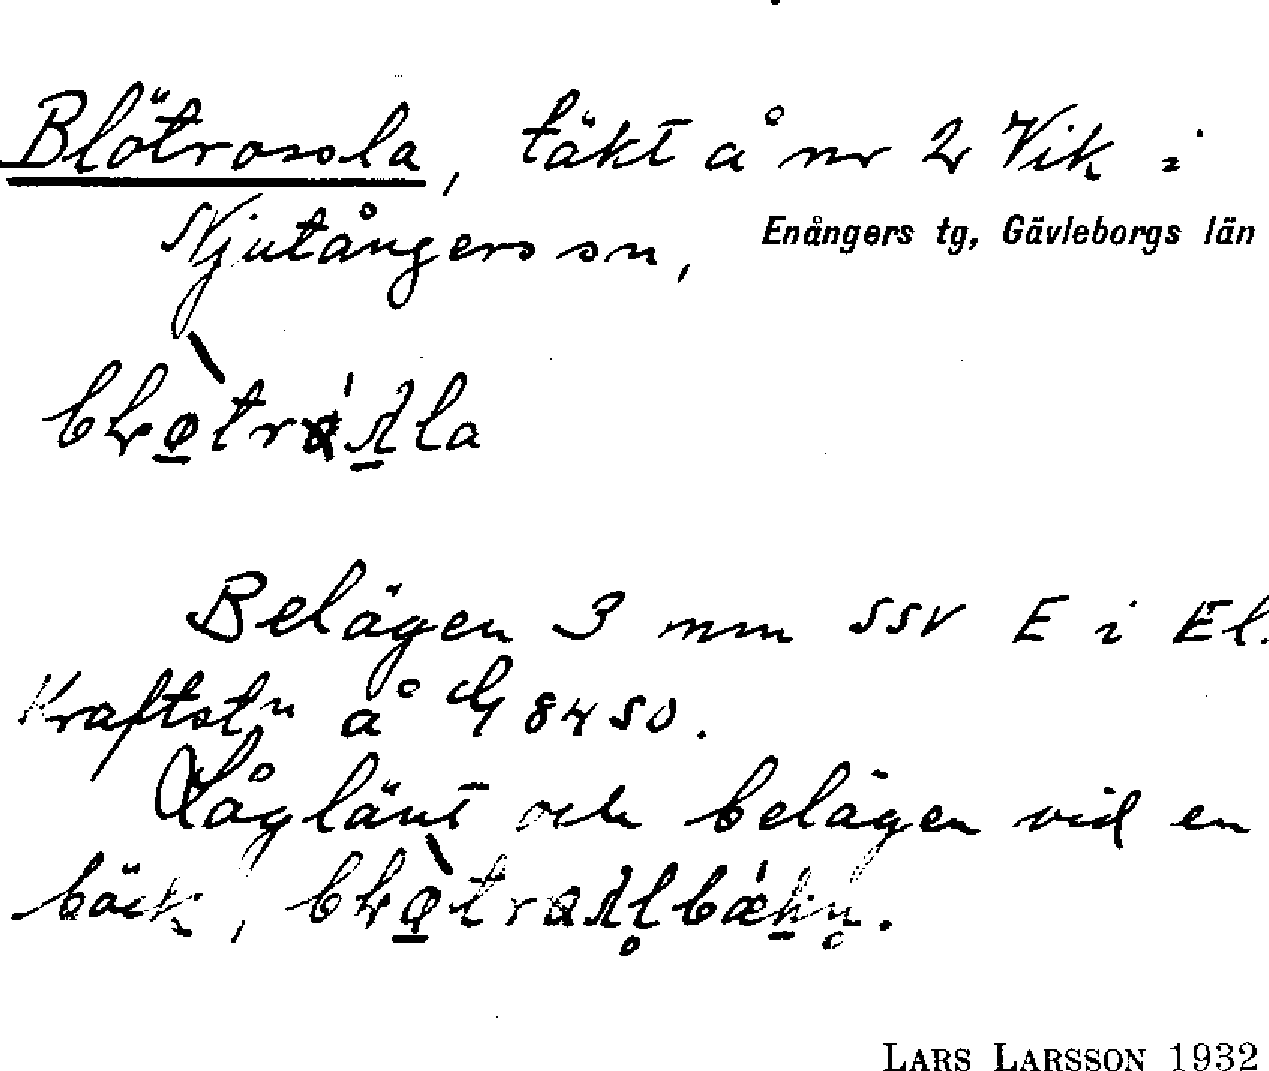 Blötrossla, täkt å nr 2 Vik i
Njutångers sn, Enångers tg, Gävleborgs län
Belägen 3 mm SSV E i El.
Kraftstn å G 8450.
Låglänt och belägen vid en
bäck,
LARS LARSSON 1932